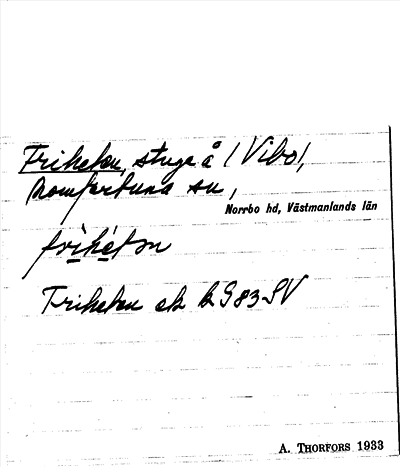 Friheten, stuga å (Vibo),
Romfartuna sn,
Norrbo hd, Västmanlands län
frihétən
Friheten ek bS83SV
A. THORFORS 1933